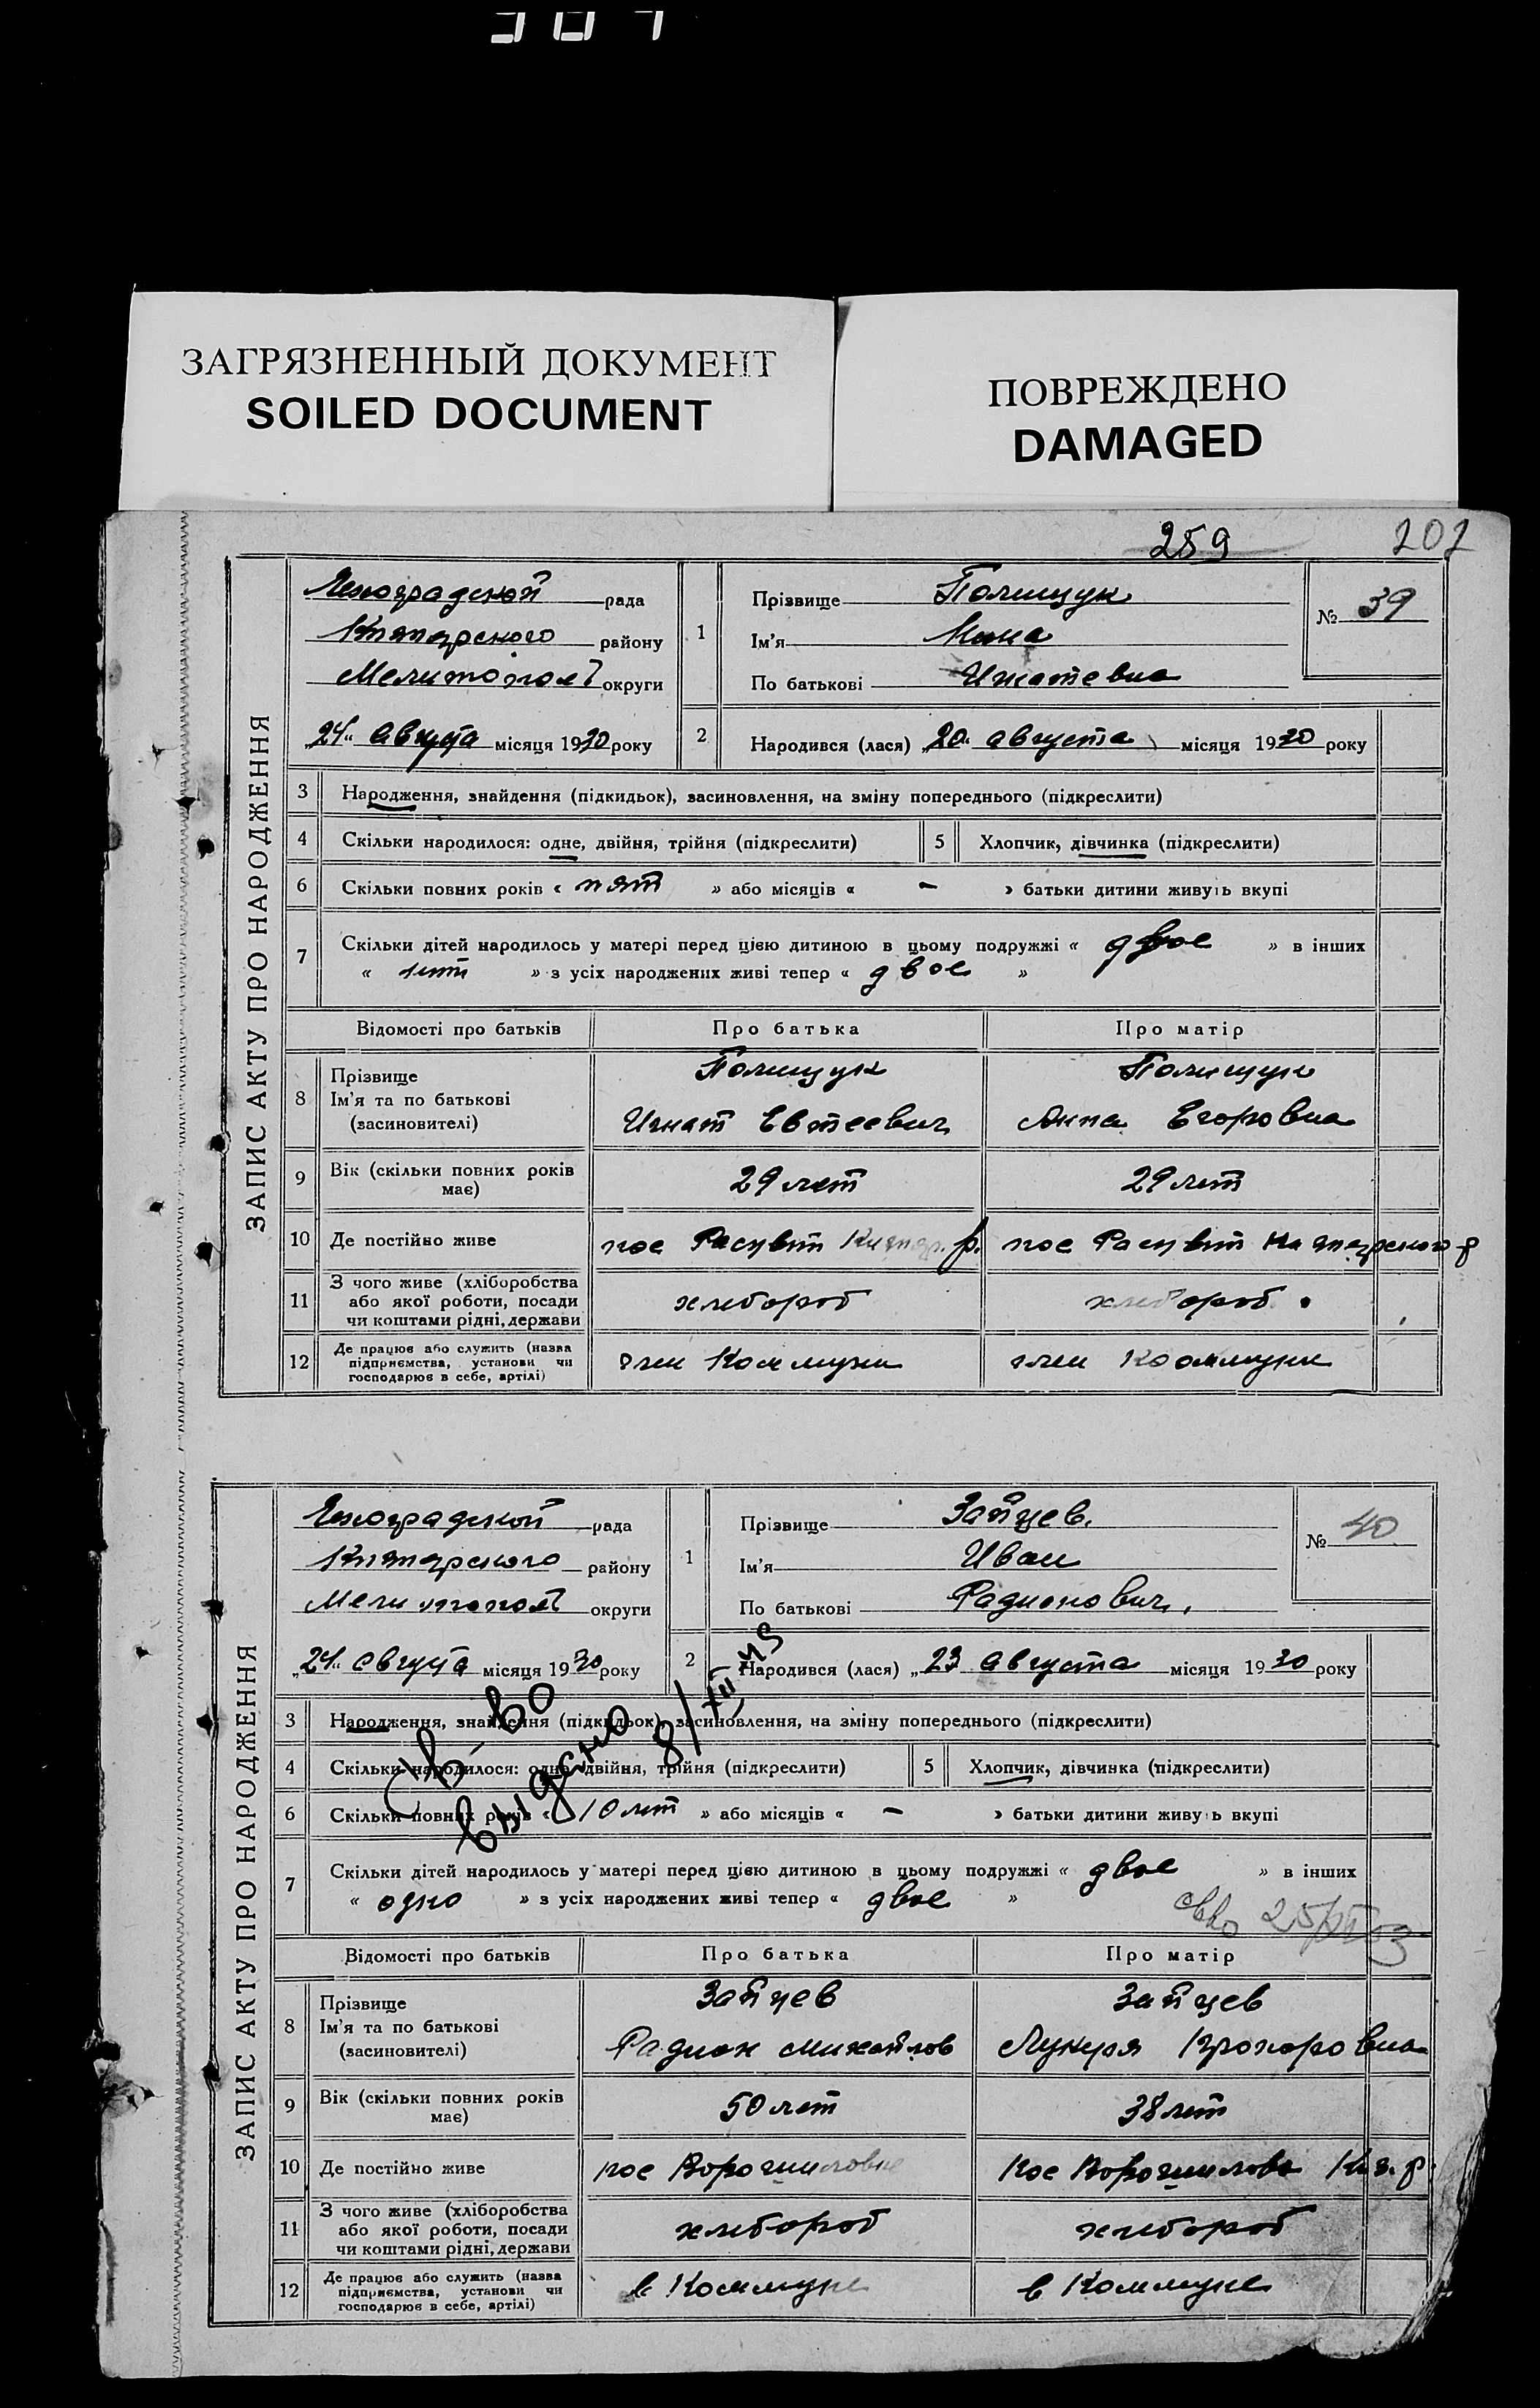 ЗАГРЯЗНЕННЫЙ ДОКУМЕНТ
SOILED DOCUMENT
ПОВРЕЖДЕНО
DAMAGED
259
202
ЗАПИС АКТУ ПРО НАРОДЖЕННЯ
рада
району
Мелитопол округи
„24" Августа місяця 1930 року
1
Прізвище Полищук
Ім'я
По батькові Игнатевна
№ 39
2
Народився (лася) „20" августа місяця 1930 року
3 Народження, знайдення (підкидьок), засиновлення, на зміну попереднього (підкреслити)
4 Скільки народилося: одне, двійня, трійня (підкреслити) 5 Хлопчик, дівчинка (підкреслити)
6 Скільки повних років « пят » або місяців « – » батьки дитини живуть вкупі
7 Скільки дітей народилось у матері перед цією дитиною в цьому подружжі « двое » в інших
« нет » з усіх народжених живі тепер « двое »
Відомості про батьків Про батька Про матір
8 Прізвище Полищук Полищук
Ім'я та по батькові
(засновителі) Игнат Евтеевич Анна Егоровна
9 Вік (скільки повних років має) 29 лет 29 лет
10 Де постійно живе пос Расцвет р. пос Расцвет р
11 З чого живе (хліборобства
або якої роботи, посади хлебороб хлебороб
чи коштами рідні, держави
12 Де працює або служить (назва
підприємства, установи чи член Коммуни член Коммуни
господарює в себе, артілі)
ЗАПИС АКТУ ПРО НАРОДЖЕННЯ
рада
району
Мелитопол округи
„24" Августа місяця 1930 року
1
Прізвище Зайцев.
Ім'я Иван
По батькові Радионович.
№ 40
2
Народився (лася) „23 августа місяця 1930 року
3 Народження, знайдення (підкидьок), засиновлення, на зміну попереднього (підкреслити)
4 Скільки народилося: одне, двійня, трійня (підкреслити) 5 Хлопчик, дівчинка (підкреслити)
6 Скільки повних років « 10 лет » або місяців « – » батьки дитини живуть вкупі
Св-во
выдано 8/XII 45
7 Скільки дітей народилось у матері перед цією дитиною в цьому подружжі « двое » в інших
« одно » з усіх народжених живі тепер « двое »
Відомості про батьків Про батька Про матір
8 Прізвище Зайцев Зайцев
Ім'я та по батькові
(засиновителі) Радион Михайлов Лукеря Прохоровна
9 Вік (скільки повних років має) 50 лет 38 лет
10 Де постійно живе пос Ворошиловка пос Ворошилова
11 З чого живе (хліборобства
або якої роботи, посади хлебороб хлебороб
чи коштами рідні, держави
12 Де працює або служить (назва
підприємства, установи чи в Коммуне в Коммуне
господарює в себе, артілі)